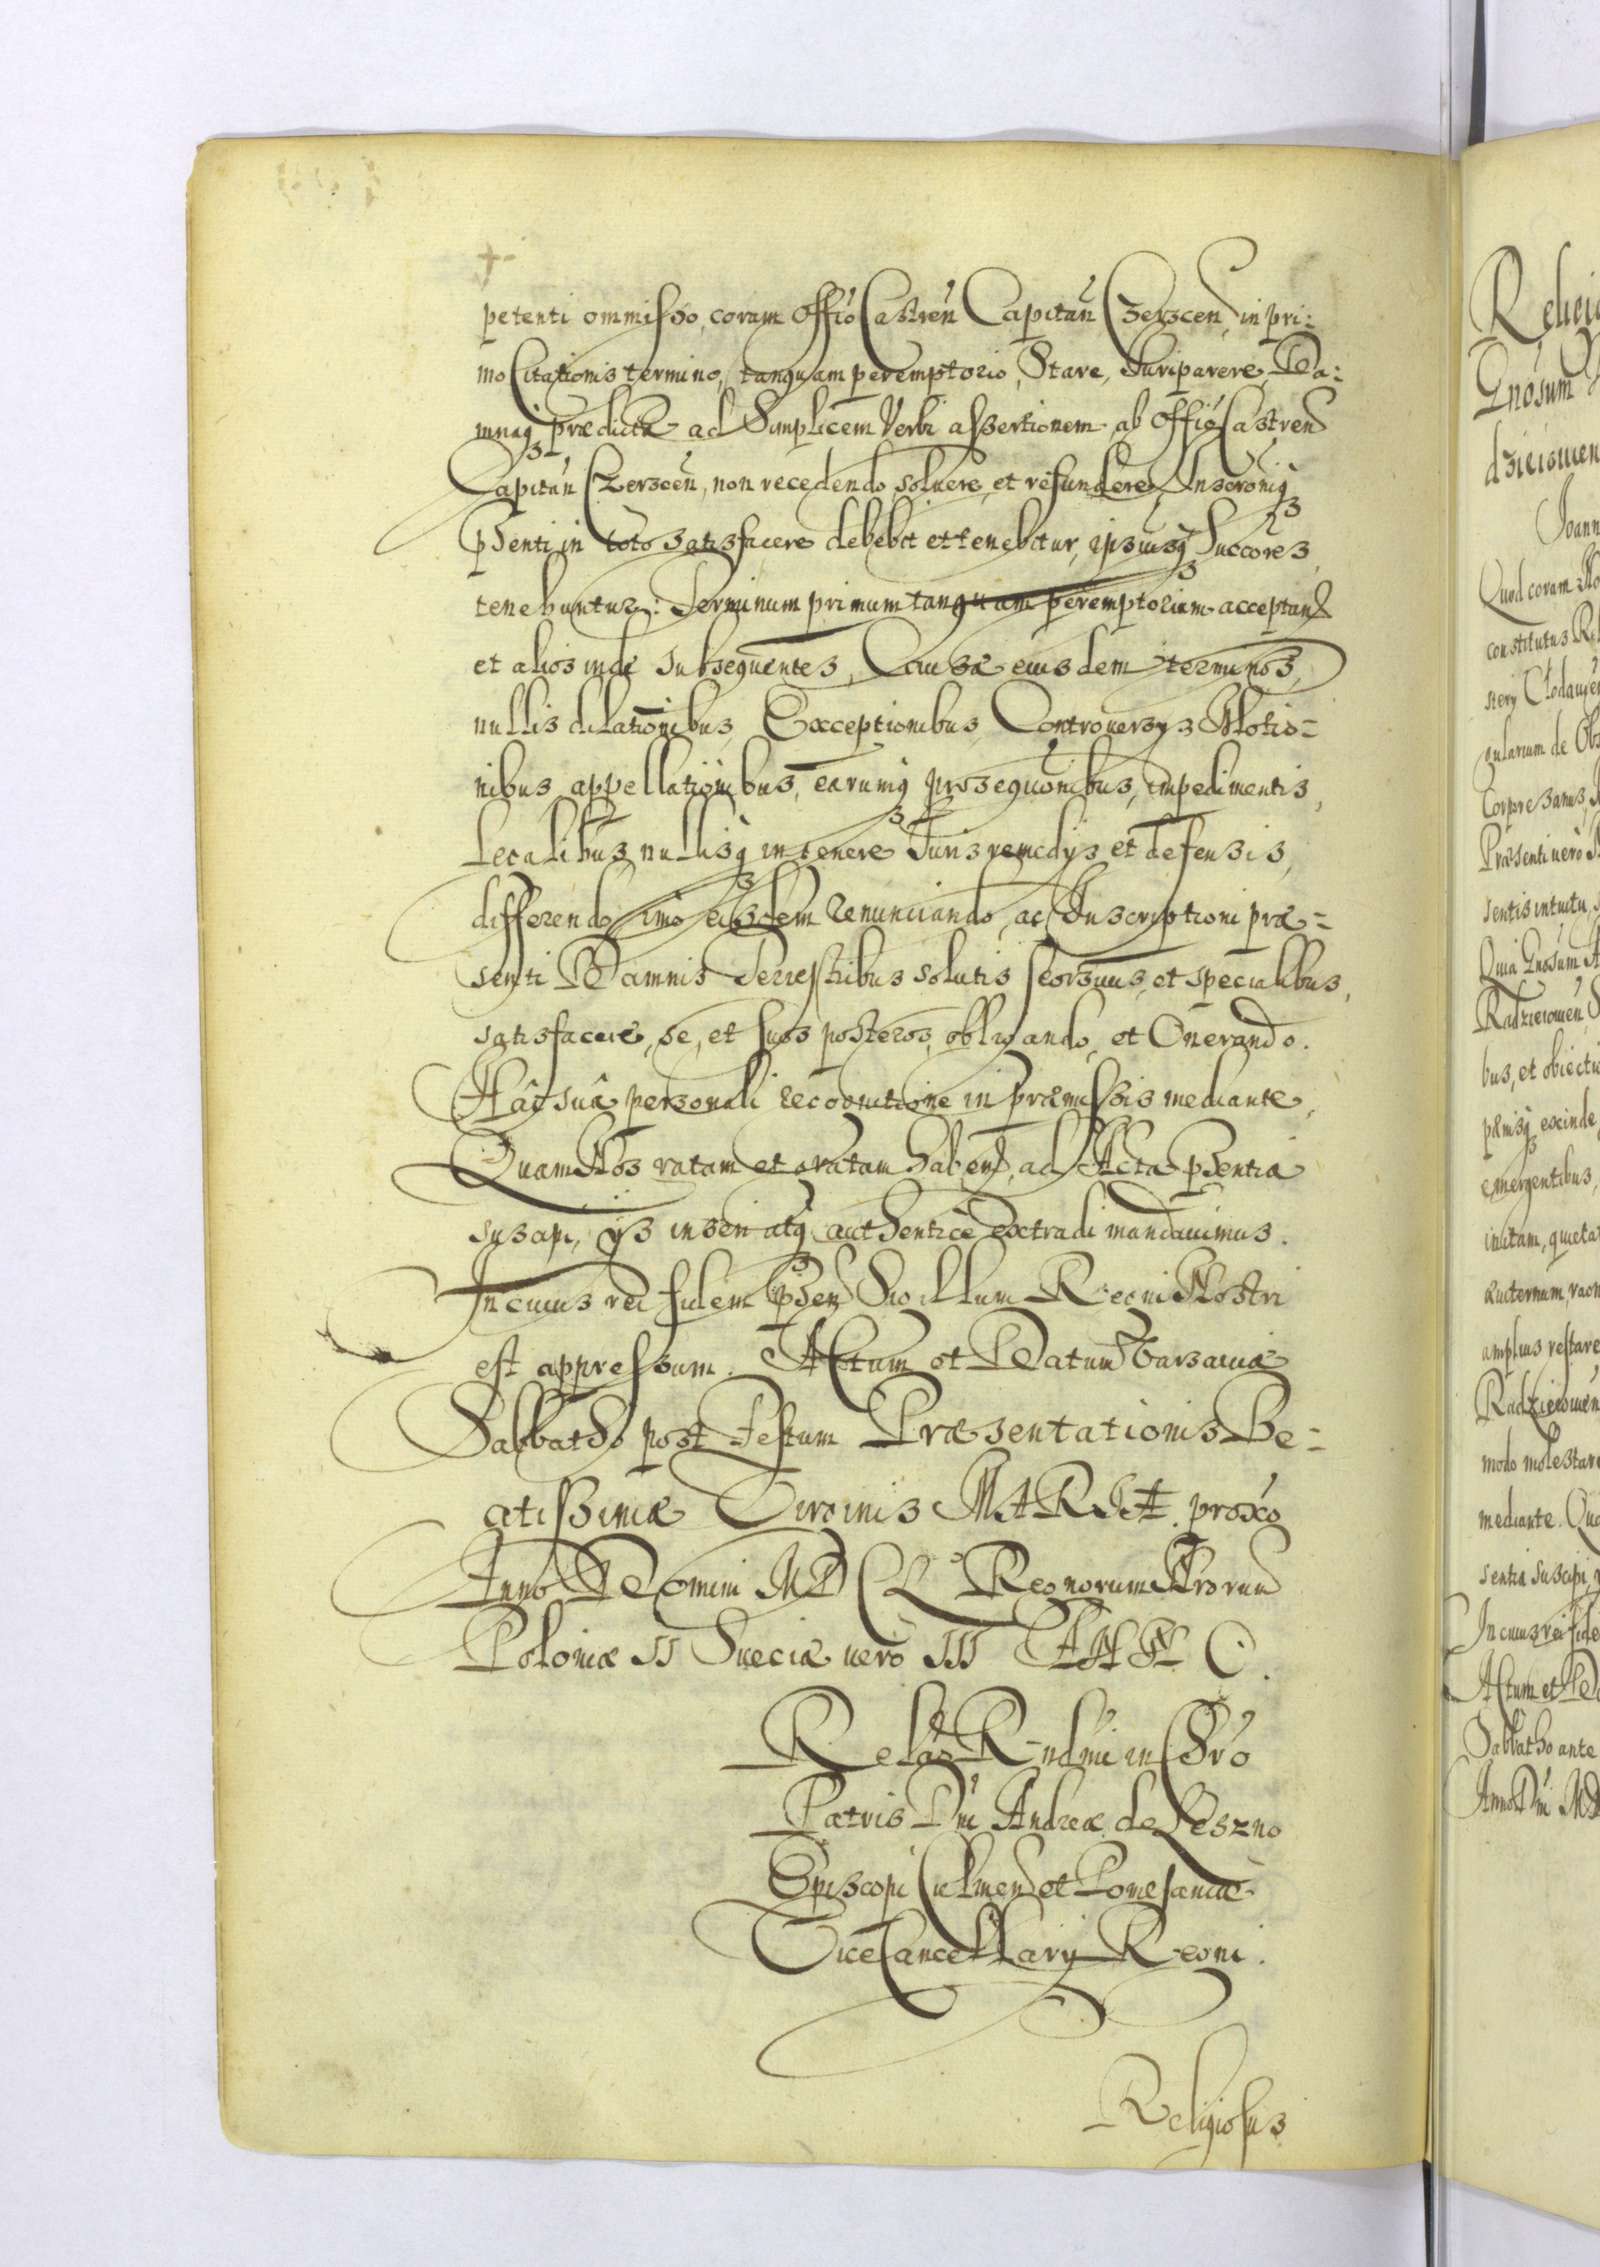 petenti ommisso, coram Offio Castren Capitan Czerscen, in pri:
mo Citationis termino, tanquam peremptorio, Stare, Juriparere, Da:
mnaq3 prædicta ad Simplicem Verbi assertionem ab Offio Castren
Capitan Czerscen, non recedendo, soluere, et refundere, Inscroniq3
psenti in toto satisfacere debebit et tenebitur, ipsiusq3 Succores
tenebuntur: Terminum primum tanquam peremptorium acceptand
et alios inde subsequentes, Causæ eiusdem terminos,
nullis dilationibus, Exceptionibus, Controuersys Motio=
nibus, appellationibus, earumq3 prosequonibus, impedimentis,
Legalibus nullisq3 in genere Juris remedys et defensis,
differendo, imo eisdem renunciando, ac Inscriptioni præ=
senti Damnis Terrestribus solutis seorsiuis, et specialibus,
satisfacere, se, et suos posteros, obligando, et Onerando.
Hâc suâ personali recognitione in præmissis mediante,
Quam Nos ratam et gratam habend, ad Acta psentia
suscipi, ys inseri atq3 authentice extradi mandauimus.
In cuius rei fidem psen Sigillum Regni Nostri
est appressum. Actum et Datum Varsauiæ
Sabbatho post Festum Præsentationis Be=
atissimæ Virginis MARIÆ proxo
Anno Domini MDCL Regnorum Nrorum
Poloniæ II Sueciæ uero III ANNO.
Relao Rndmi in Chro
Patris Dni Andreæ de Leszno
Episcopi Culmen et Pomesaniæ
ViceCancellarij Regni.
Religiosus
Religio
Gnosum
dzieiowen
Joann
Quod coram No
constitutus Rel
stery Clodauien
gularium de Obs
Corpore sanus,
Præsenti uero
sentis intuitu,
Quia Gnosum A
Radzieiowen,
bus, et obiectio
pæmisq3 exinde
emergentibus,
initam, quieta
æuternum, uacu
amplius restare
Radzieiowen
modo molestare
mediante. Qua
sentia suscipi,
In cuius rei fide
Actum et Da
Sabbatho ante
Anno Dni MD